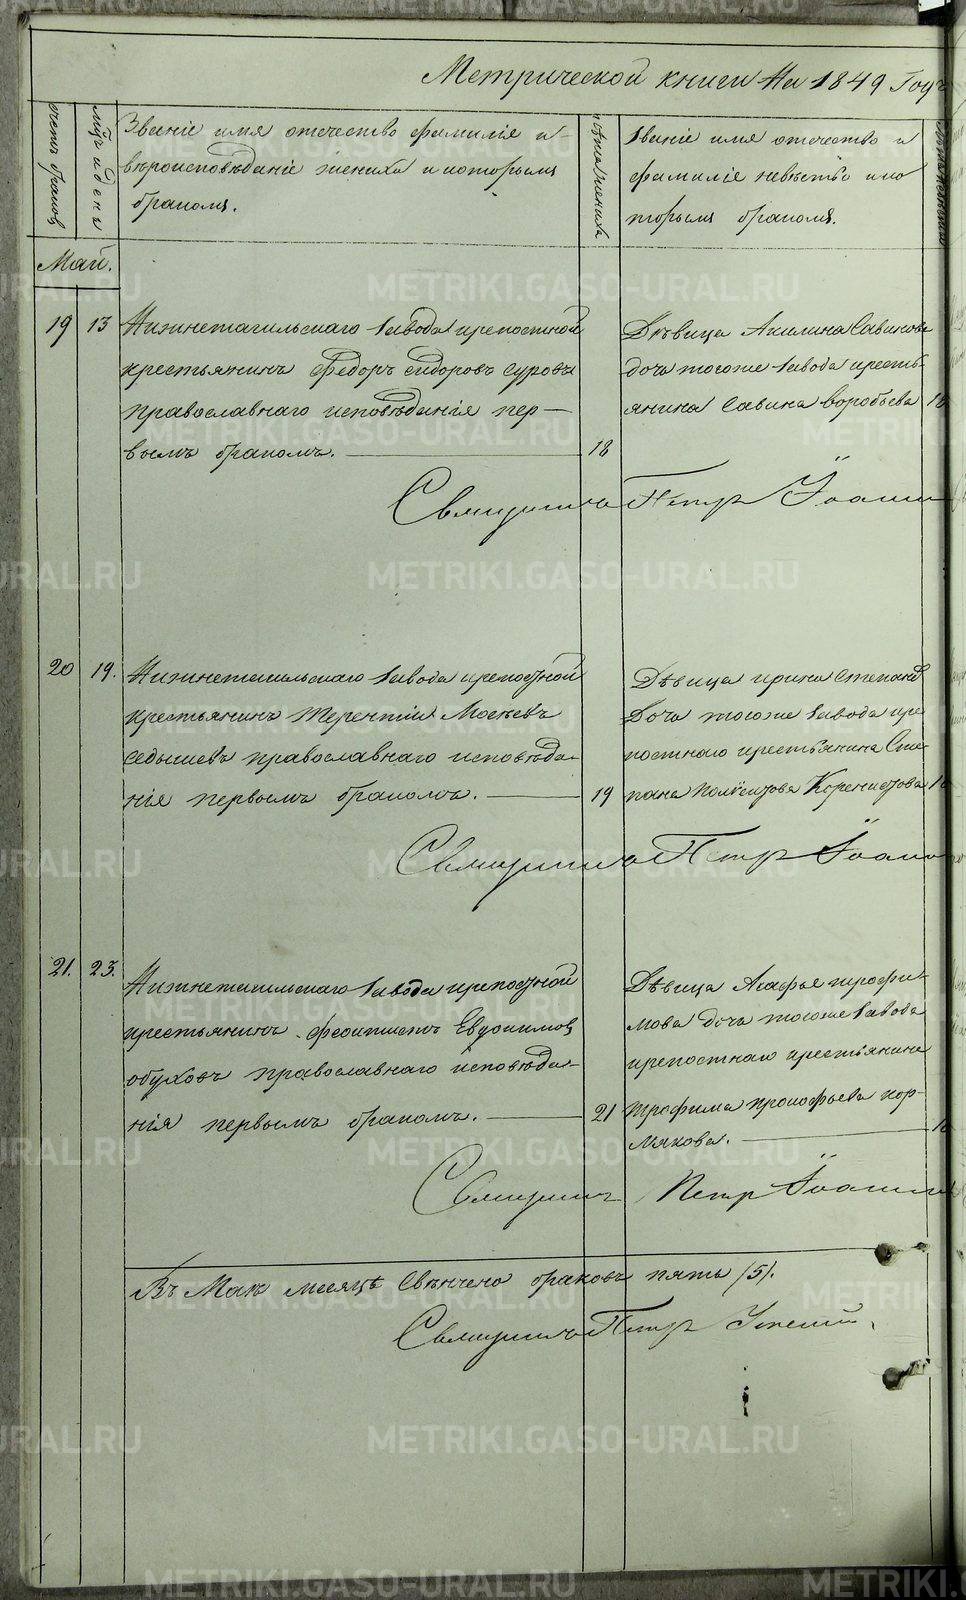 Метрической книги На 1849 Годъ
Званіе имя отечество фамиліе и
вѣроисповѣданіе жениха и которымъ
бракомъ.
Лѣта жениха
Званіе имя отечество и
фамиліе невѣсты и ко
торымъ бракомъ.
счетъ браковъ
Мѣсяцъ и день
Май.
19 13 Нижнетагильскаго Завода крепостной
крестьянинъ Федоръ Сидоровъ Суровъ
православнаго исповѣданія пер—
вымъ бракомъ. 18
Дѣвица Акилина Савинова
дочь тогоже Завода кресть-
янина Савина Воробьева 18
Священникъ Петръ Іоанн
20 19. Нижнетагильскаго Завода крепостной
крестьянинъ Терентій Мосѣевъ
Седышевъ православнаго исповѣда-
нія первымъ бракомъ. 19
Дѣвица Ирина Степано
Дочь тогоже Завода кре
постнаго крестьянина Сте-
пана Корекистова
Священникъ Петръ Іоанн
21. 23. Нижнетагильскаго Завода крепостной
крестьянинъ Феоктистъ Евдокимовъ
Обуховъ православнаго исповѣда-
нія первымъ бракомъ. 21
Дѣвица Агафья Трофи-
мова дочь тогоже Завода
крепостнаго крестьянина
Трофима Прокофьева Кор-
мякова.
Священникъ Петр Іоанн
Въ Маѣ месяцѣ Свѣнчено браковъ пять (5).
Священникъ Петръ
METRIKI.GASO-URAL.RU